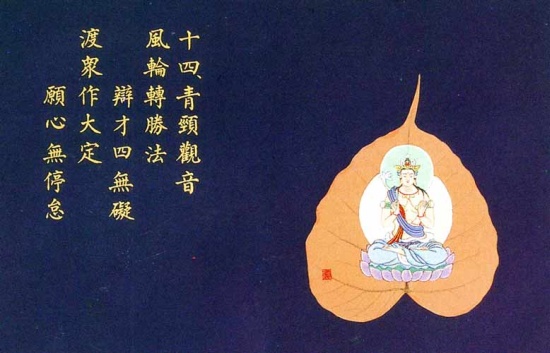 十四、青頸觀音
風輪轉勝法
辯才四無礙
渡眾作大定
願心無停怠